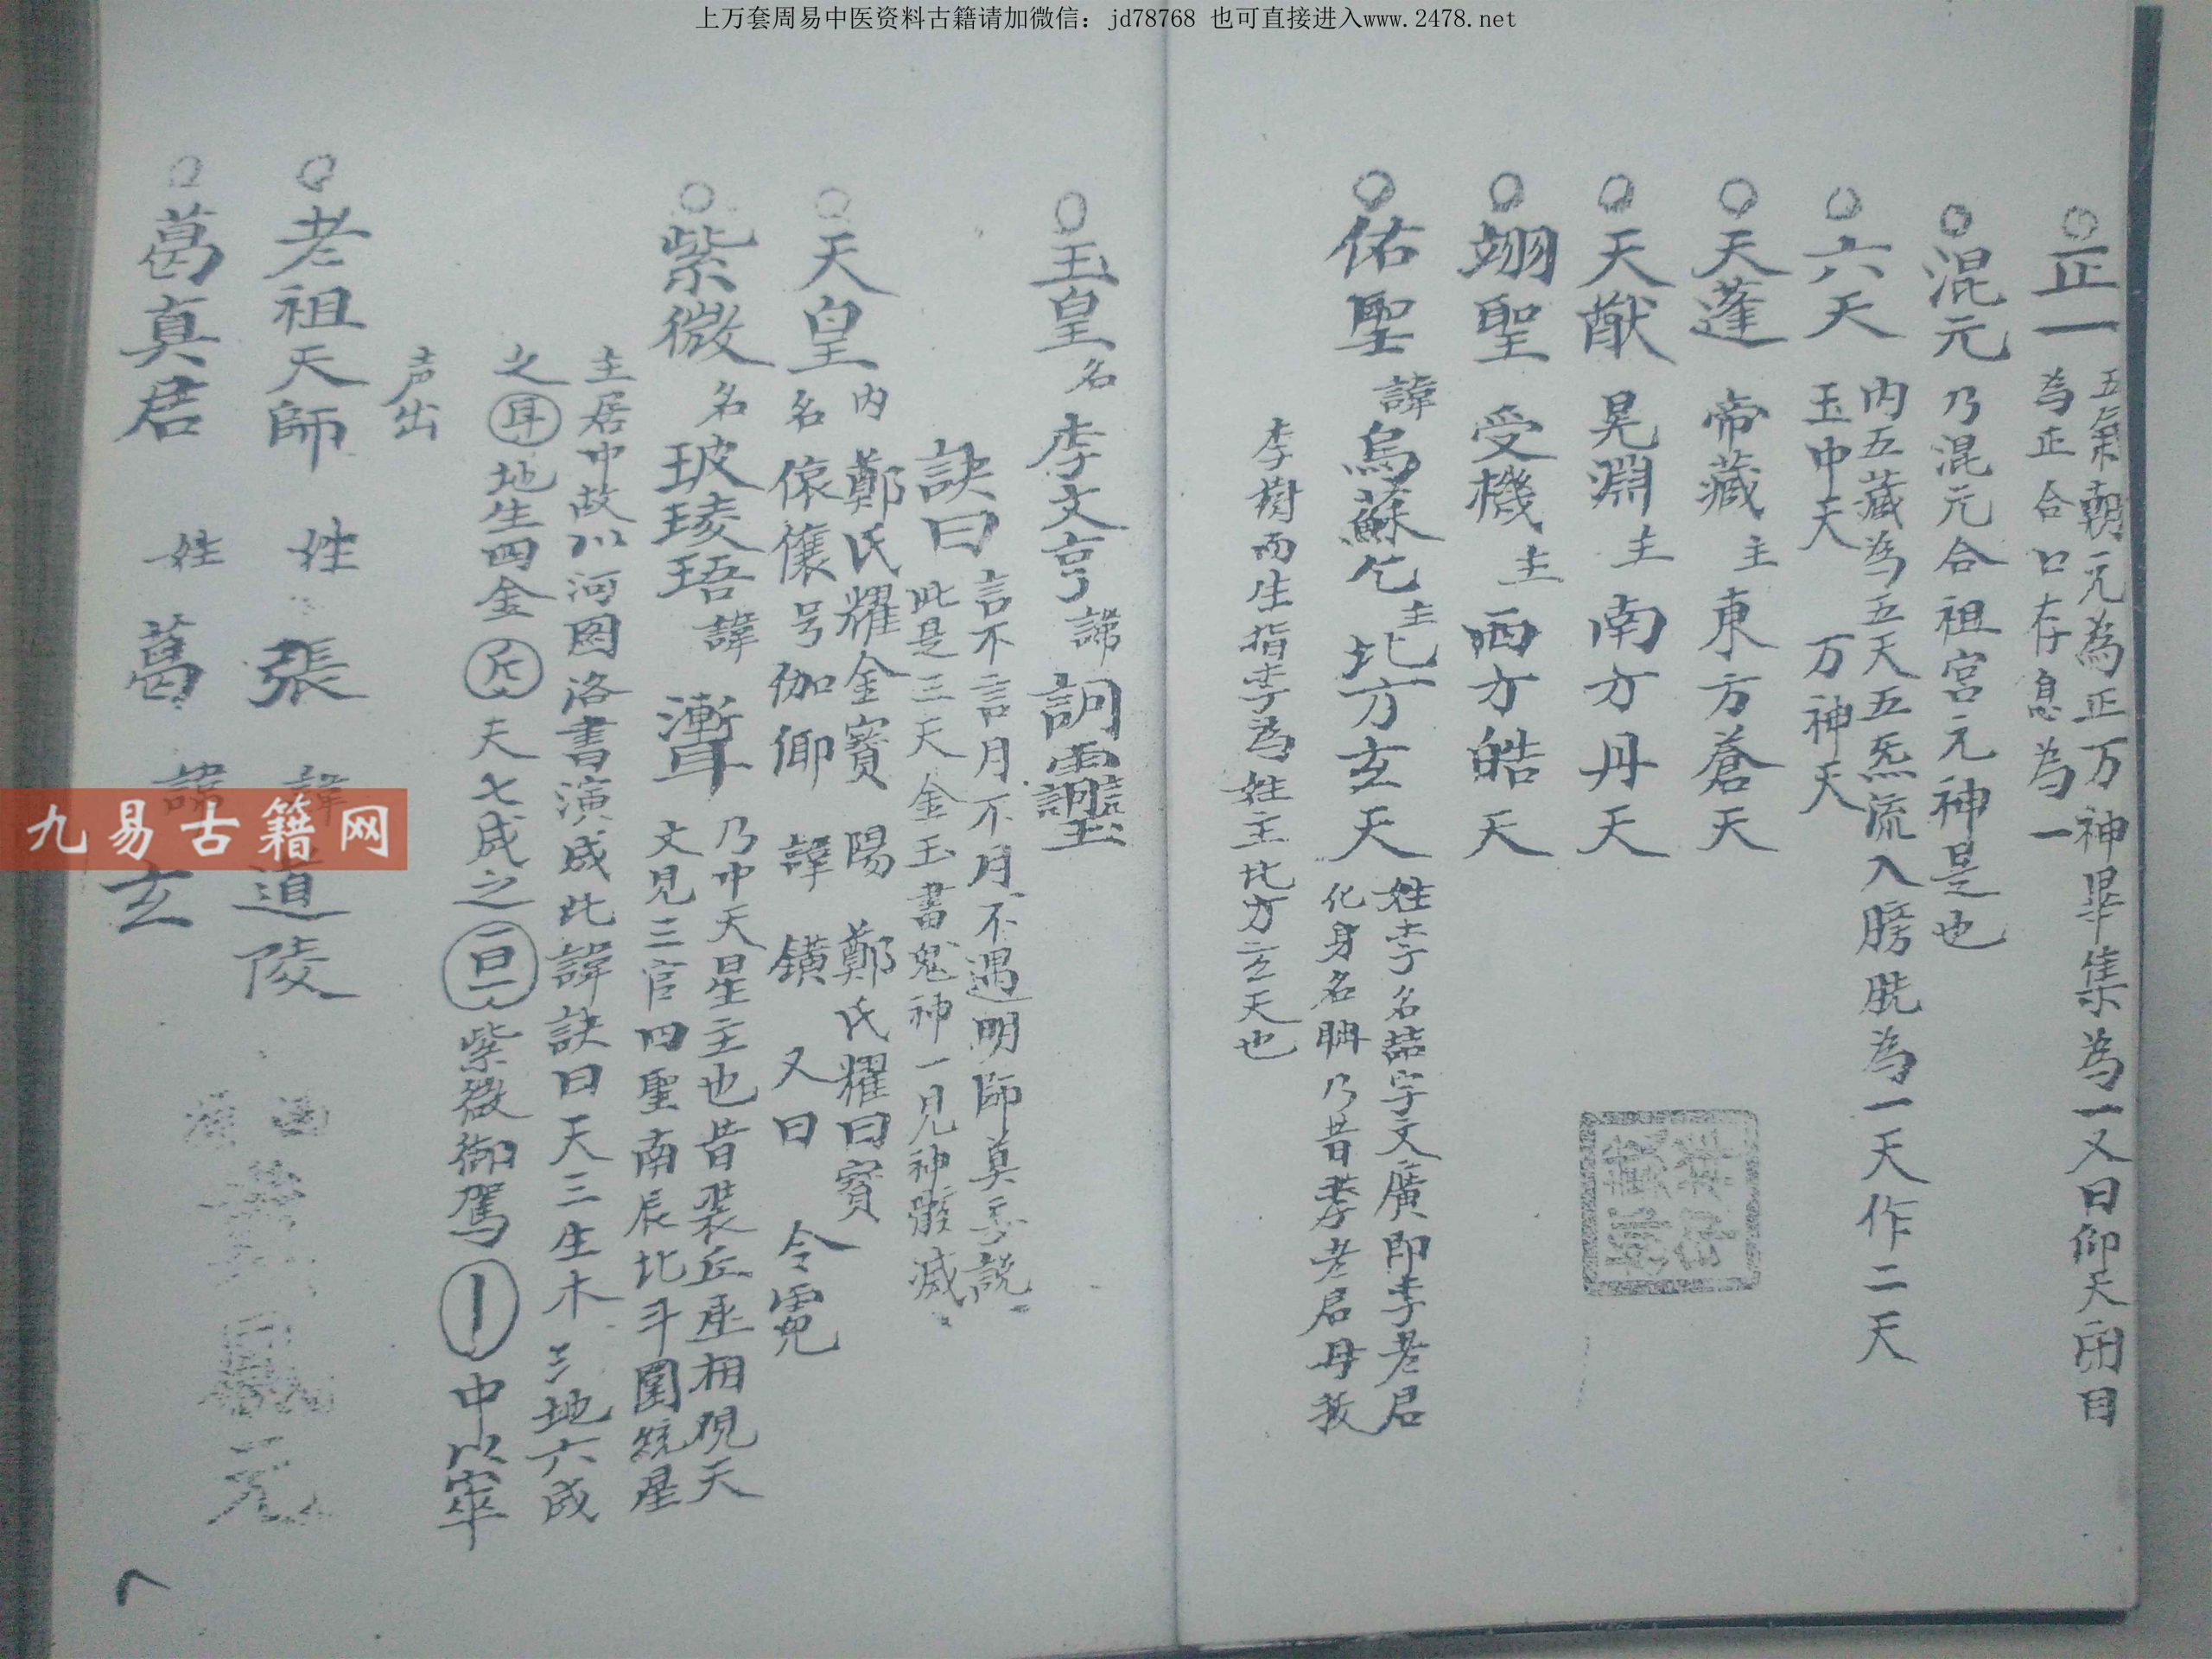 上万套周易中医资料古籍请加微信：jd78768 也可直接进入www.2478.net
○正一 五氣朝元為正万神畢集為一又曰仰天閉目
為正合口存息為一
○混元 乃混元合祖宮元神是也
○六天 內五藏為五天五炁流入膀胱為一天作二天
玉中天 万神天
○天蓬 帝藏 主東方蒼天
○天猷 晃淵 主南方丹天
○翊聖 受機 主西方皓天
○佑聖 諱烏蘇乞 主北方玄天 姓李名喆字文廣即李老君
化身名 乃昔李老君母
李樹而生指李為姓主北方玄天也
○玉皇 名李文亨 諦
訣曰 言不言月不月不遇明師莫示說
此是三天金玉書鬼神一見神骸滅
○天皇 內鄭氏耀金寶 陽 鄭氏耀曰寶
名儴儴号伽仰 諱鐄 又曰 令霓
○紫微 名玻琖珸 諱 乃中天星主也昔裴丘座相視天
文見三官四聖南辰北斗圍繞星
主居中故以河図洛書演成此諱訣曰天三生木三地六成
之耳地生四金 天七成之 紫微御駕 中以宰
声出
○老祖天師 姓張 諱道陵
○葛真君 姓葛 諱玄
元
九易古籍网